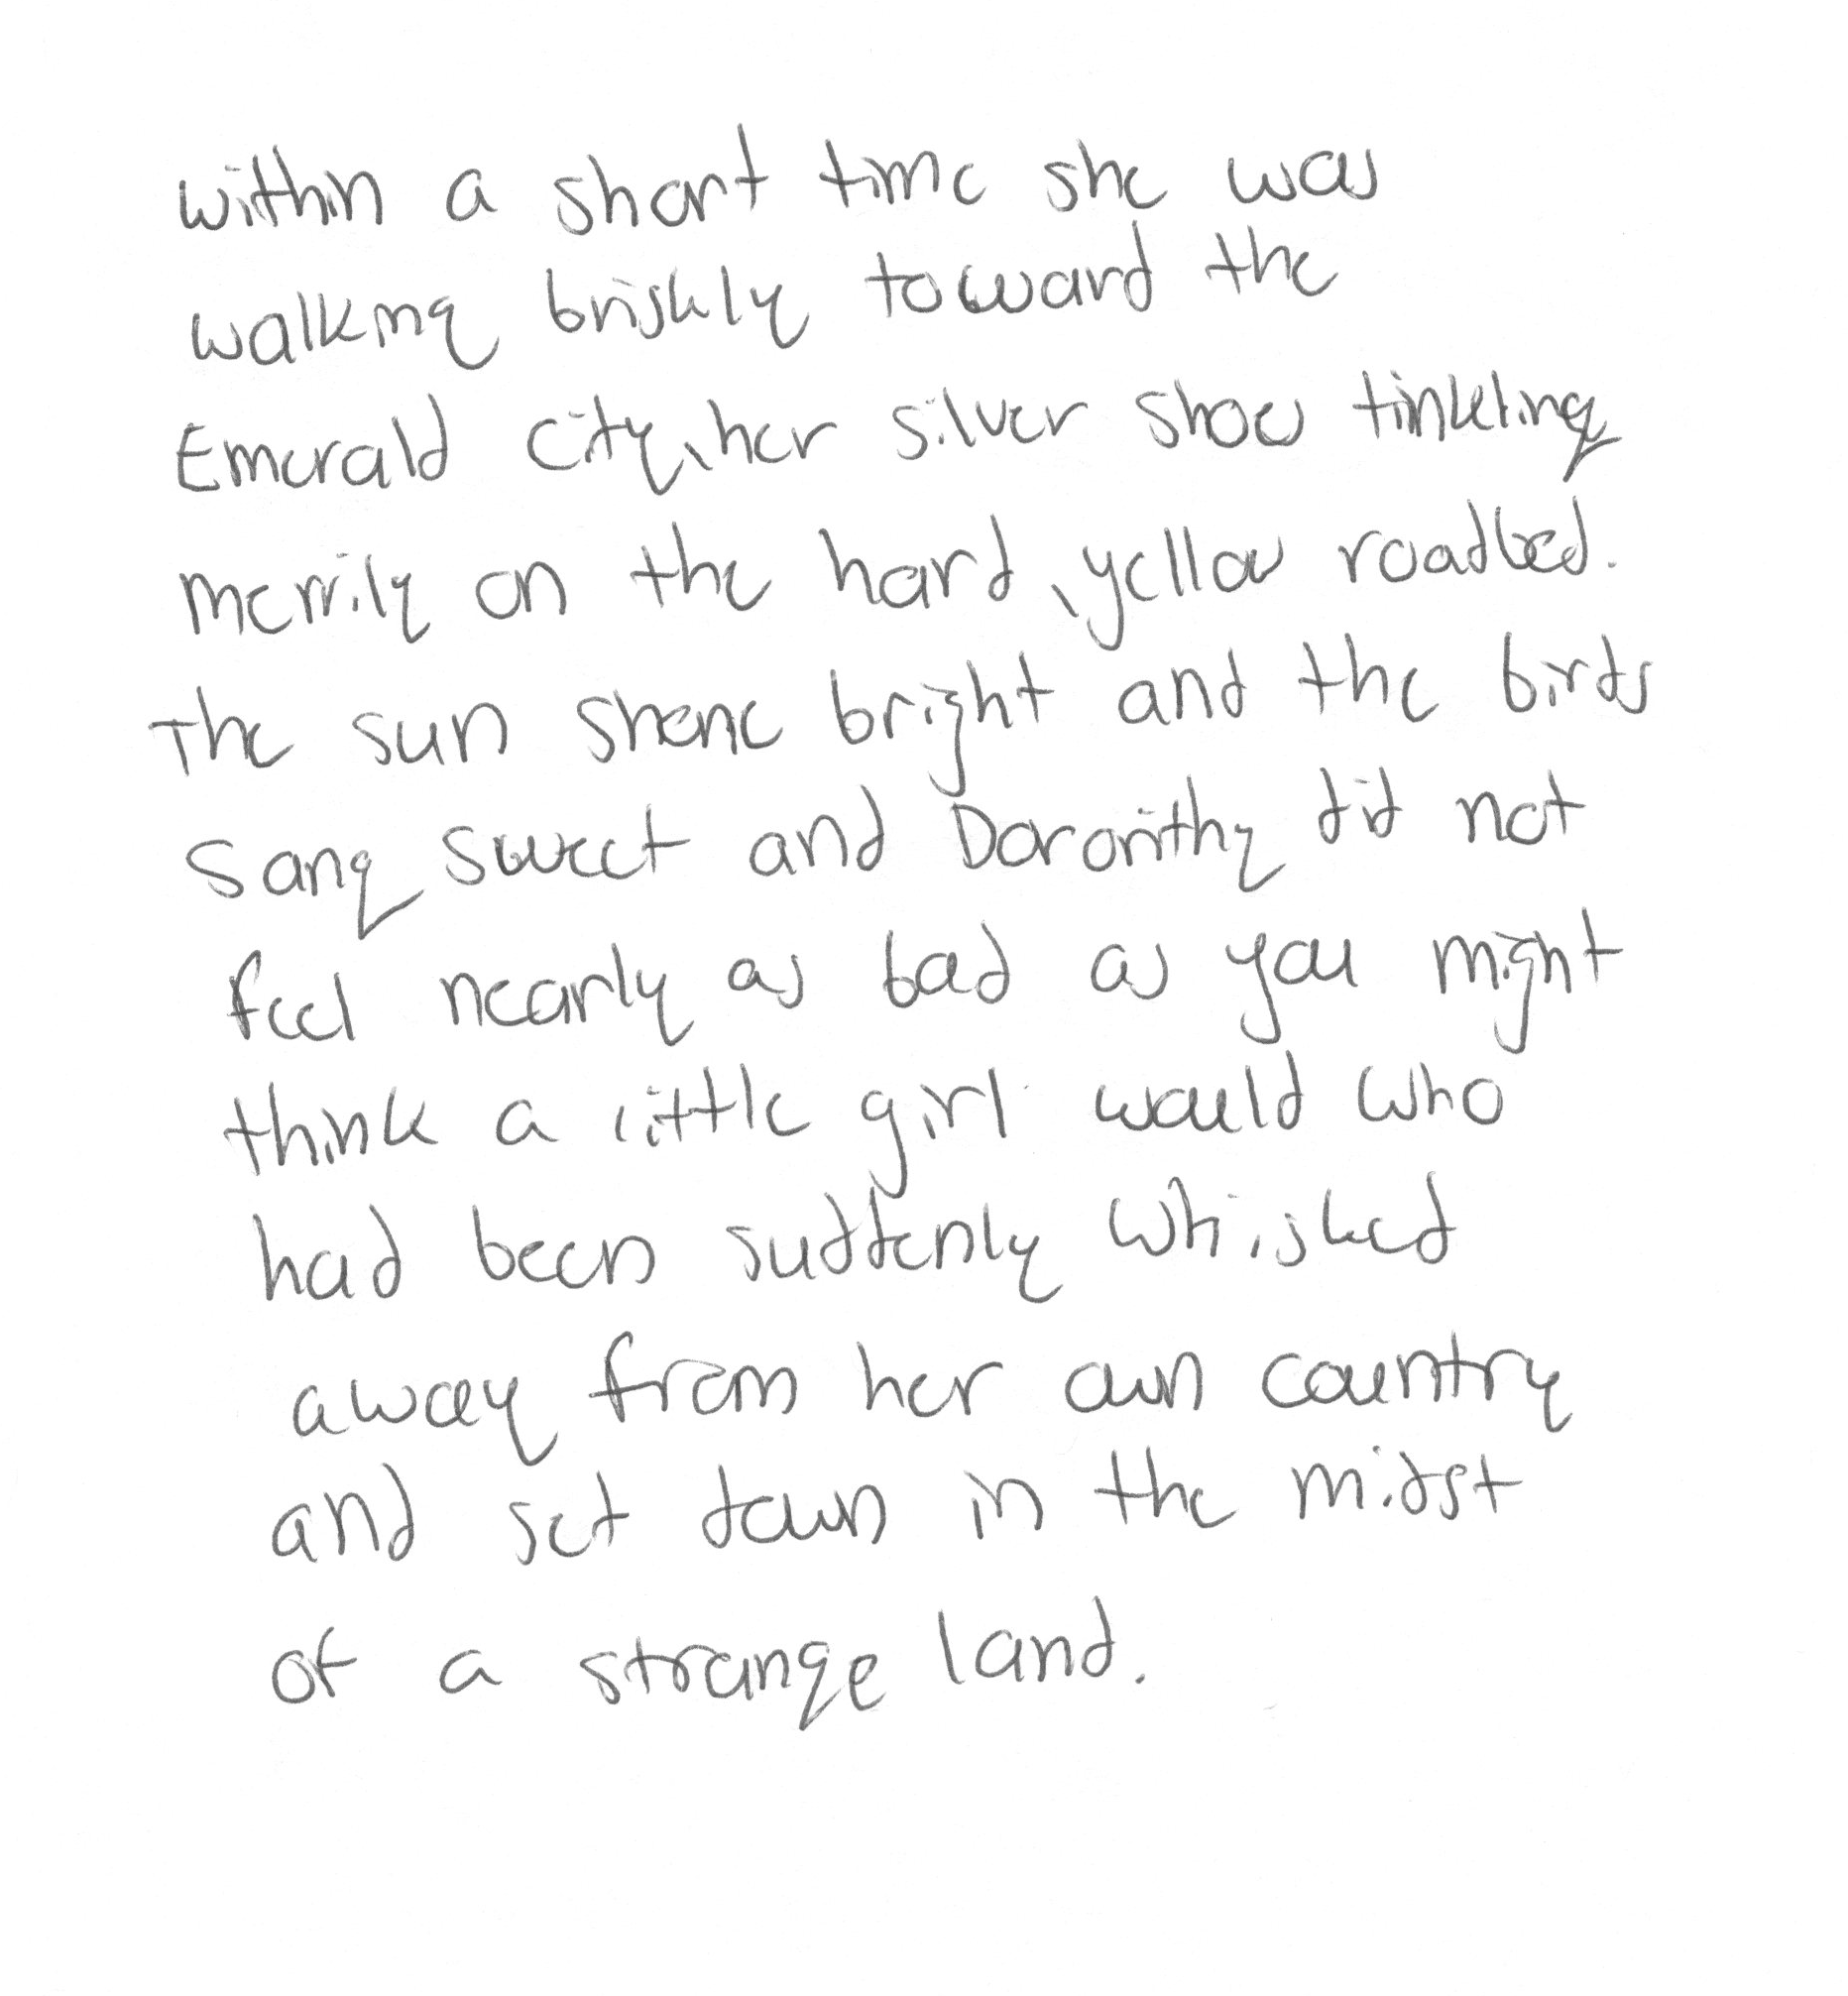 within a short time she was
walking briskly toward the
Emerald City, her silver shoes tinkling
merrily on the hard, yellow roadbed.
The sun shone bright and the birds
sang sweet and Dorothy did not
feel nearly as bad as you might
think a little girl would who
had been suddenly whisked
away from her own country
and set down in the midst
of a strange land.